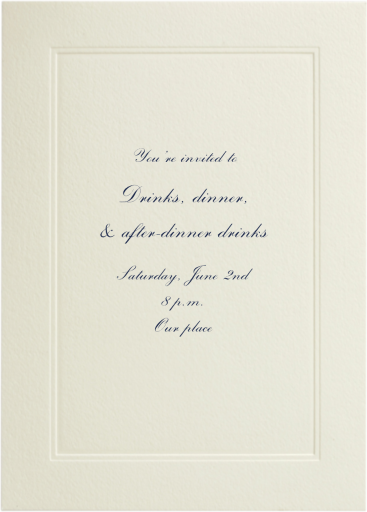 You're invited to
Drinks, dinner,
& after-dinner drinks
Saturday, June 2nd
8 p.m.
Our place